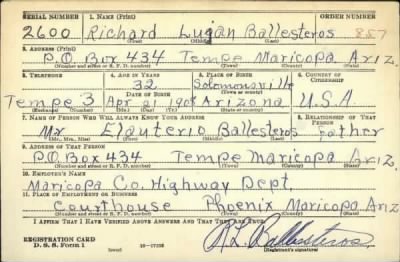 SERIAL NUMBER 1. NAME (Print) ORDER NUMBER
2600 Richard Lujan Ballesteros 857
(First) (Middle) (Last)
2. ADDRESS (Print)
P.O. Box 434 Tempe Maricopa Ariz.
(Number and street or R. F. D. number) (Town) (County) (State)
3. TELEPHONE 4. AGE IN YEARS 5. PLACE OF BIRTH 6. COUNTRY OF CITIZENSHIP
32 Solomonsville
DATE OF BIRTH (Town or county)
Tempe 3 Apr 21 1908 Arizona U.S.A
(Exchange) (Number) (Mo.) (Day) (Yr.) (State or country)
7. NAME OF PERSON WHO WILL ALWAYS KNOW YOUR ADDRESS 8. RELATIONSHIP OF THAT PERSON
Mr Elauterio Ballesteros Father
(Mr., Mrs., Miss) (First) (Middle) (Last)
9. ADDRESS OF THAT PERSON
P.O. Box 434 Tempe Maricopa Ariz.
(Number and street or R. F. D. number) (Town) (County) (State)
10. EMPLOYER'S NAME
Maricopa Co. Highway Dept.
11. PLACE OF EMPLOYMENT OR BUSINESS
Courthouse Phoenix Maricopa Ariz
(Number and street or R. F. D. number) (Town) (County) (State)
I AFFIRM THAT I HAVE VERIFIED ABOVE ANSWERS AND THAT THEY ARE TRUE.
REGISTRATION CARD R.L. Ballesteros
D. S. S. Form 1 (over) 16-17105 (Registrant's signature)